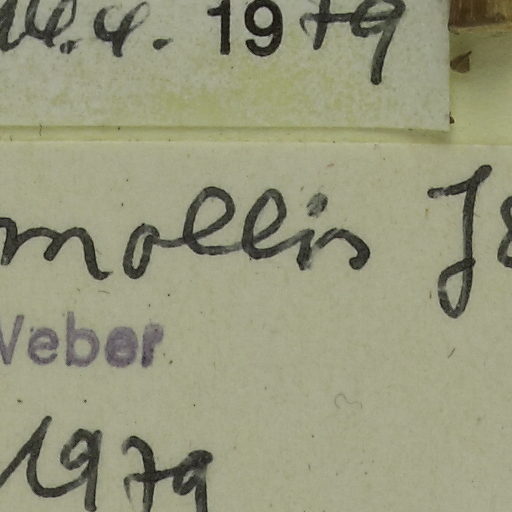 4. 1979
mollis
Weber
1979